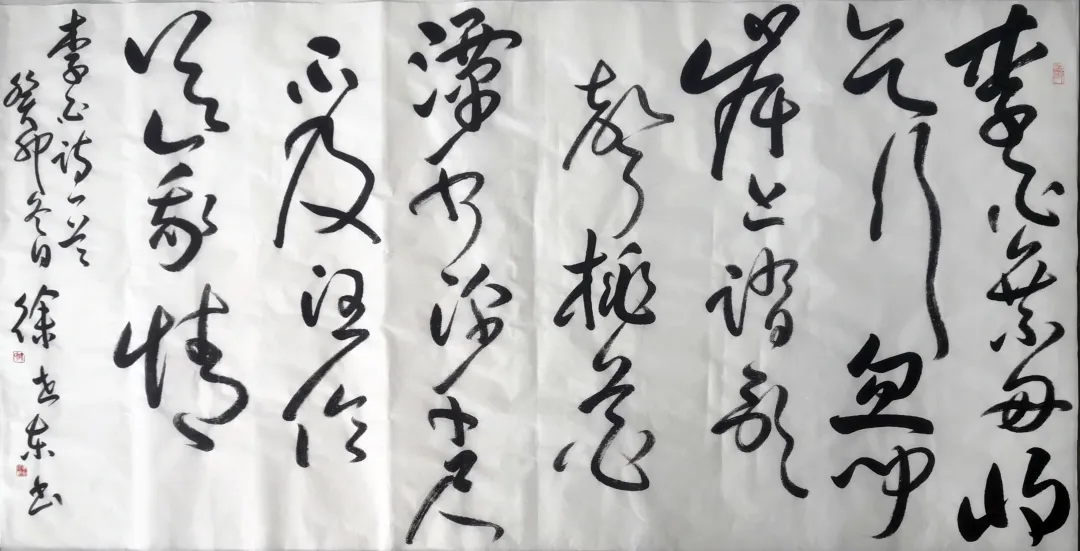 李白乘舟将
欲行忽闻
岸上踏歌
声桃花
潭水深千尺
不及汪伦
送我情
李白诗一首
癸卯冬日徐东书